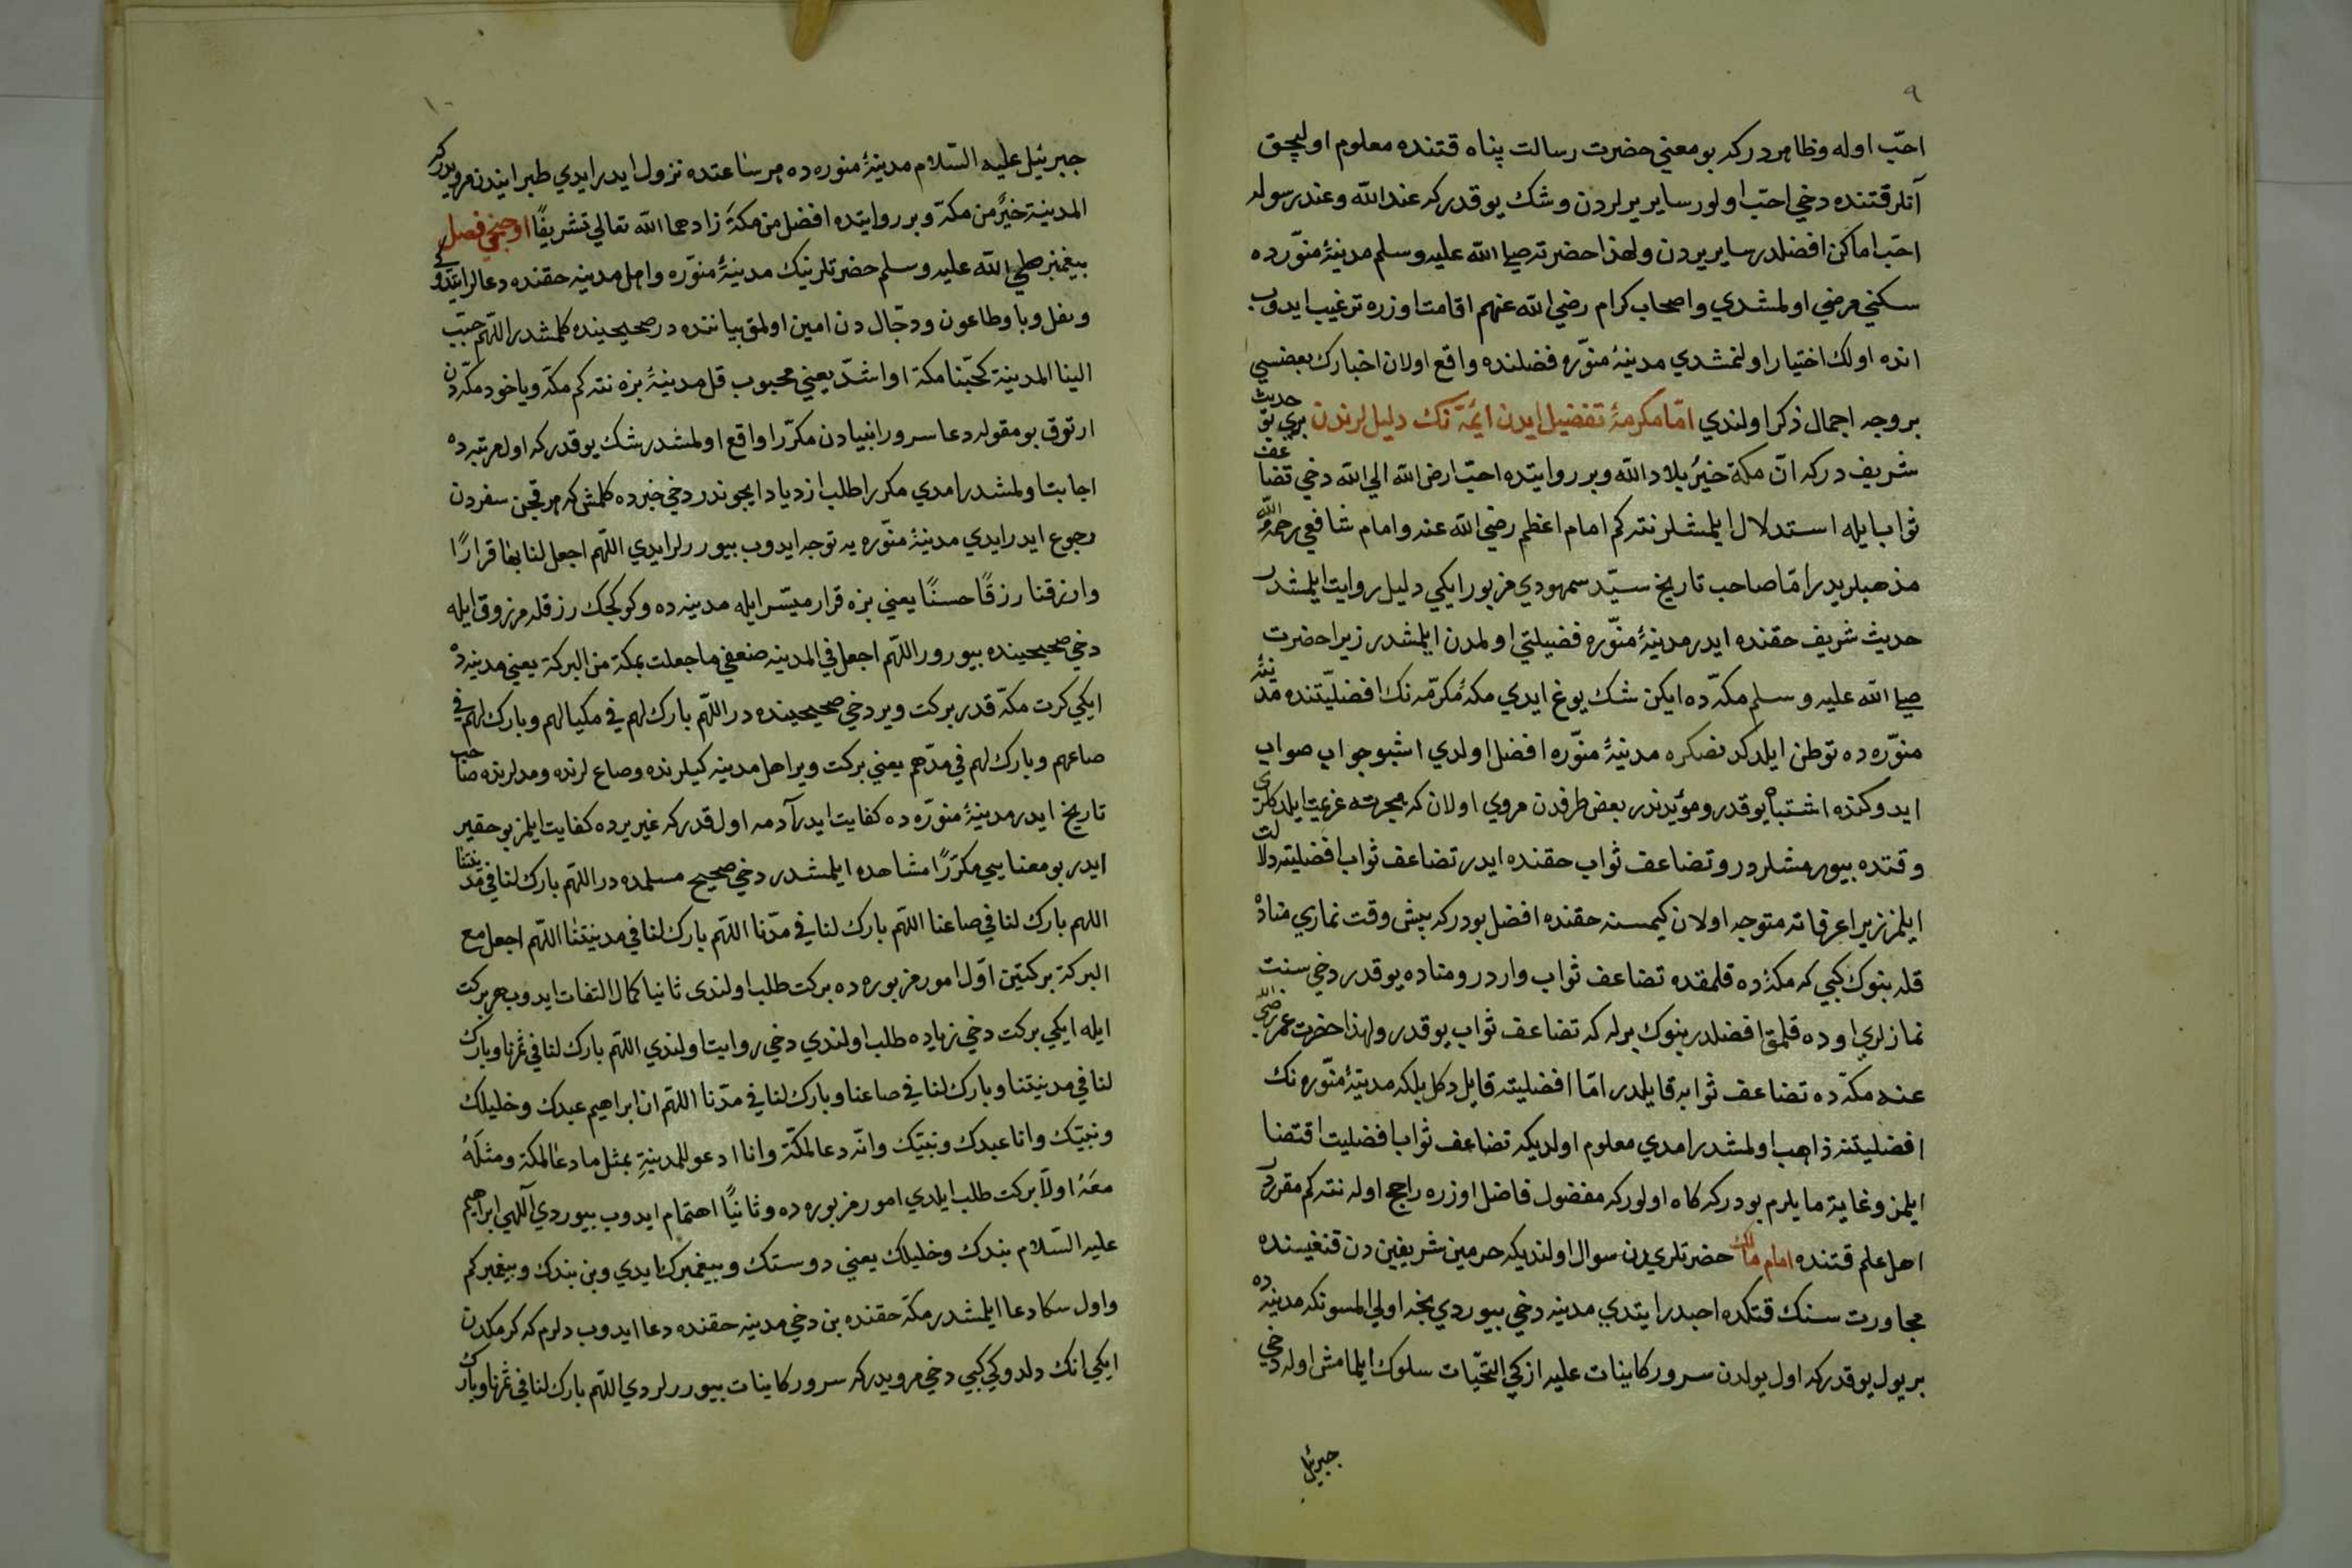 ٩
احبّ اوله وظاهردركه بو معني حضرت رسالت پناه قتنده معلوم اوليچق
آنلر قتنده دخي احبّ اولور ساير يرلردن وشك يوقدركه عندالله وعند رسوله
احبّ اماكن افضلدر ساير يردن ولهذا حضرته صلى الله عليه وسلم مدينۀ منوّرده
سكني مرضي اولمشدي واصحاب كرام رضي الله عنهم اقامت اوزره ترغيب ايدوب
انده اولمك اختيار اولنمشدي مدينۀ منوّره فضلنده واقع اولان اخبارك بعضسي
بر وجه اجمال ذكر اولندي امّا مكرمۀ تفضيل ايدن ائمّۀ نك دليللرندن بري بو حديث
شريف دركه انّ مكة خيرُ بلاد الله وبر روايتده احبّ ارض الله الي الله دخي تضاعف
ثواب ايله استدلال ايلمشلر نته كم امام اعظم رضي الله عنه وامام شافعي رحمه الله
مذهبلريدر امّا صاحب تاريخ سيّد سمهودي مزبور ايكي دليل روايت ايلمشدر
حديث شريف حقنده ايدر مدينۀ منوّره فضيلتي اولمدن ايلمشدر زيرا حضرت
صلى الله عليه وسلم مكهّ ده ايكن شك يوغ ايدي مكۀ مكرّمه نك افضليّتنده مدينۀ
منوّره ده توطن ايلدكدنصكره مدينۀ منوّره افضل اولدي اشبو جواب صواب
ايدوكنده اشتباه يوقدر ومؤيدندر بعض طرفدن مروي اولان كه هجرته عزيمت ايلدكلري
وقتده بيورمشلردر وتضاعف ثواب حقنده ايدر تضاعف ثواب افضليته دلالت
ايلمز زيرا عرفاته متوجه اولان كيمسنه حقنده افضل بودركه بيش وقت نمازي مناده
قله بنوك كبي كه مكۀ ده قلمقده تضاعف ثواب واردر ومناده يوقدر دخي سنت
نمازلري اوده قلمق افضلدر بنوك برله كه تضاعف ثواب يوقدر ولهذا حضرت عمر رضي الله
عنه مكهّ ده تضاعف ثوابه قايلدر امّا افضليته قايل دكل بلكه مدينۀ منوّره نك
افضليتنه ذاهب اولمشدر امدي معلوم اولديكه تضاعف ثواب افضليت اقتضا
ايلمز وغاية ما يلزم بودركه كاه اولوركه مفضول فاضل اوزره راجح اوله نته كم مقرردر
اهل علم قتنده امام مالك حضرتلريدن سوال اولنديكه حرمين شريفين دن قنغيسنده
مجاورت سنك قتكده احبدر ايتدي مدينه دخي بيوردي نجه اولي المسونكه مدينه ده
بر يول يوقدركه اول يولدن سرور كاينات عليه ازكي التحيّات سلوك ايلمامش اوله دخي
جبرئيل
١٠
جبرئيل عليه السّلام مدينۀ منوّره ده هر ساعتده نزول ايدر ايدي طبرانيدن مرويدركه
المدينة خيرٌ من مكة وبر روايتده افضل من مكة زادهما الله تعالي تشريفًا اوچنجي فصل
پيغمبر صلي الله عليه وسلم حضرتلرينك مدينۀ منوّره واهل مدينه حقنده دعالر ايتدوكي
ونقل وبا وطاعون ودجّال دن امين اولمق بياننده در صحيحينده كلمشدر اللهّم حبّب
الينا المدينة كحبّنا مكة او اشدّ يعني محبوب قل مدينۀ بزه نته كم مكة ويا خود مكهّ دن
ارتوق بو مقوله دعا سرور انبيادن مكرّرا واقع اولمشدر شك يوقدركه اول مرتبه ده
اجابت اولمشدر امدي مكررا طلب ازدياد ايچوندر دخي خبرده كلمش كه هر قچن سفردن
رجوع ايدر ايدي مدينۀ منوّره يه توجه ايدوب بيوررلر ايدي اللهّم اجعل لنا بها قرارًا
وارزقنا رزقًا حسنًا يعني بزه قرار ميسّر ايله مدينه ده وكوكچك رزقله مرزوق ايله
دخي صحيحينده بيورور اللهّم اجعل في المدينه ضعفي ما جعلت بمكة من البركة يعني مدينه ده
ايكي كرت مكهّ قدر بركت وير دخي صحيحينده در اللهّم بارك لهم في مكيالهم وبارك لهم في
صاعهم وبارك لهم في مدّهم يعني بركت وير اهل مدينه كيلرنده وصاع لرنده ومدلرنده صاحب
تاريخ ايدر مدينۀ منوّره ده كفايت ايدر آدمه اول قدركه غير يرده كفايت ايلمز بو حقير
ايدر بو معنايي مكرّرًا مشاهده ايلمشدر دخي صحيح مسلمده در اللهّم بارك لنا في مدينتنا
اللهم بارك لنا في صاعنا اللهّم بارك لنا في مدّنا اللهّم بارك لنا في مدينتنا اللهّم اجعل مع
البركة بركتين اوّل امور مزبوره ده بركت طلب اولندى ثانيا كمال التفات ايدوب هر بركت
ايله ايكي بركت دخي زياده طلب اولندي دخي روايت اولندي اللهّم بارك لنا في ثمرنا وبارك
لنا في مدينتنا وبارك لنا في صاعنا وبارك لنا في مدّنا اللهّم ان ابراهيم عبدك وخليلك
ونبيّك وانا عبدك ونبيّك وانّه دعا لمكّة وانا ادعو للمدينةِ بمثل ما دعا لمكة ومثلَهُ
معَهُ اولاً بركت طلب ايلدي امور مزبوره ده وثانيًا اهتمام ايدوب بيوردي آلهي ابراهيم
عليه السّلام بندك وخليلك يعني دوستك وپيغمبرك ايدي وبن بندك وپيغمبركم
واول سكا دعا ايلمشدر مكة حقنده بن دخي مدينه حقنده دعا ايدوب دلرم كه كرمكدن
ايكي انك دلدوكي كبي دخي مرويدركه سرور كاينات بيوررلردي اللهّم بارك لنا في ثمرنا وبارك